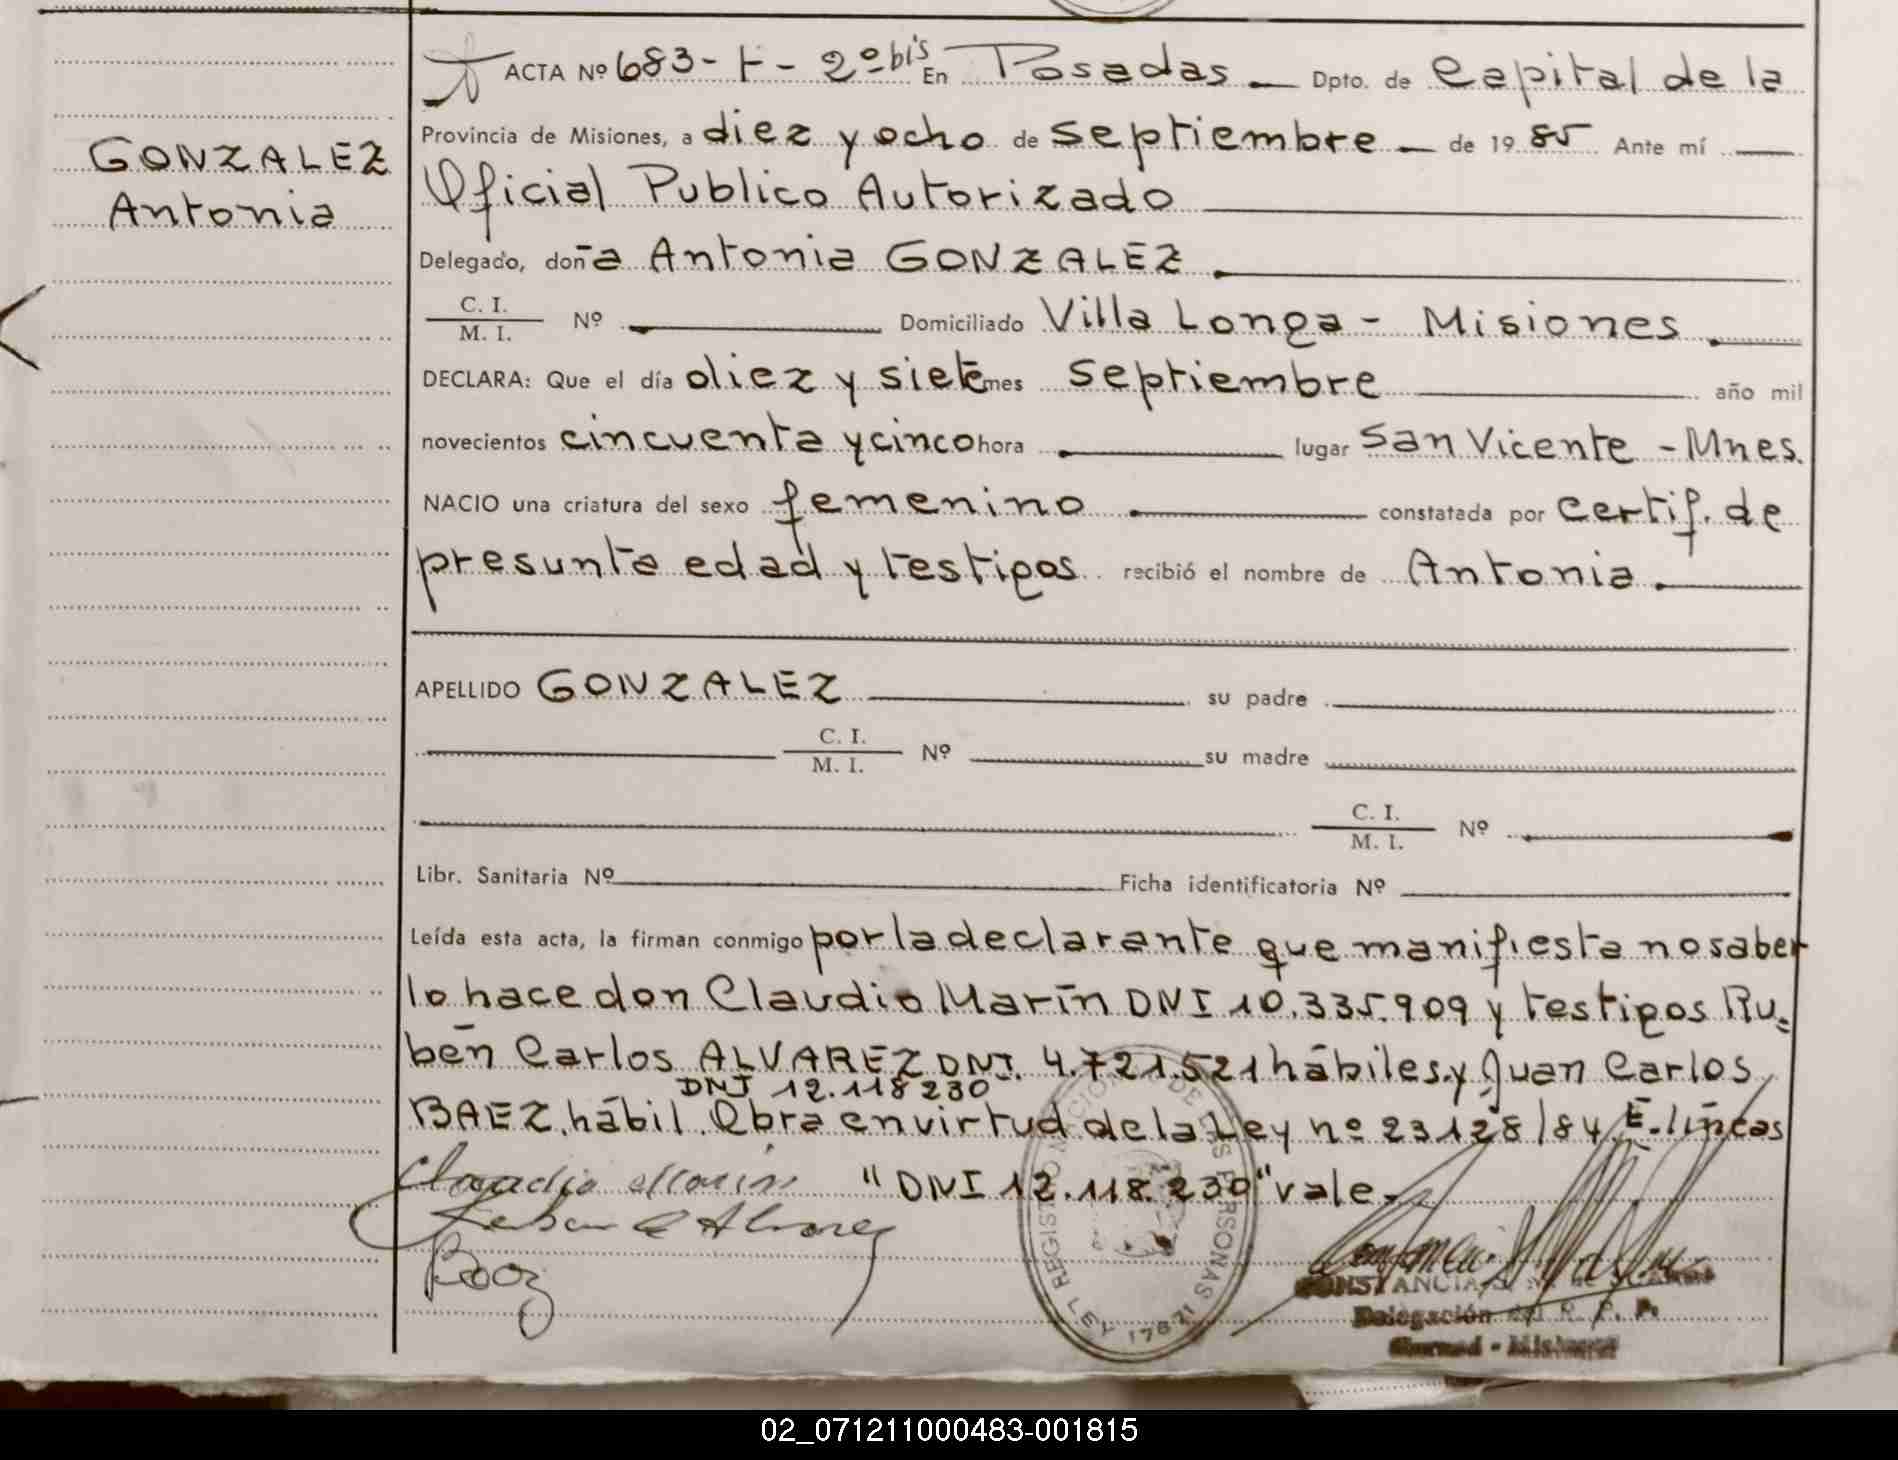 GONZALEZ
Antonia
ACTA Nº 683-t-2º bis En Posadas Dpto. de Capital de la
Provincia de Misiones, a diez y ocho de Septiembre de 1985 Ante mí
Oficial Publico Autorizado
Delegado, doña Antonia GONZALEZ
C. I.
M. I. Nº Domiciliado Villa Longa - Misiones
DECLARA: Que el día diez y siete mes Septiembre año mil
novecientos cincuenta y cinco hora lugar San Vicente - Mnes.
NACIO una criatura del sexo femenino constatada por Certif. de
presunta edad y testigos recibió el nombre de Antonia
APELLIDO GONZALEZ su padre
C. I.
M. I. Nº su madre
C. I.
M. I. Nº
Libr. Sanitaria Nº Ficha identificatoria Nº
Leída esta acta, la firman conmigo por la declarante que manifiesta no saber
lo hace don Claudio Marín DNI 10.335.909 y testigos Ru=
bén Carlos ALVAREZ DNI. 4.721.521 hábiles y Juan Carlos
DNI 12.118230
BAEZ, hábil. Obra en virtud de la Ley nº 23128/84 E. líneas
"DNI 12.118.230" vale.
Claudio Marin
Ruben C Alvarez
Baez
REGISTRO NACIONAL DE LAS PERSONAS
LEY 17671
CONSTANCIA
Delegación del R. P. P.
02_071211000483-001815